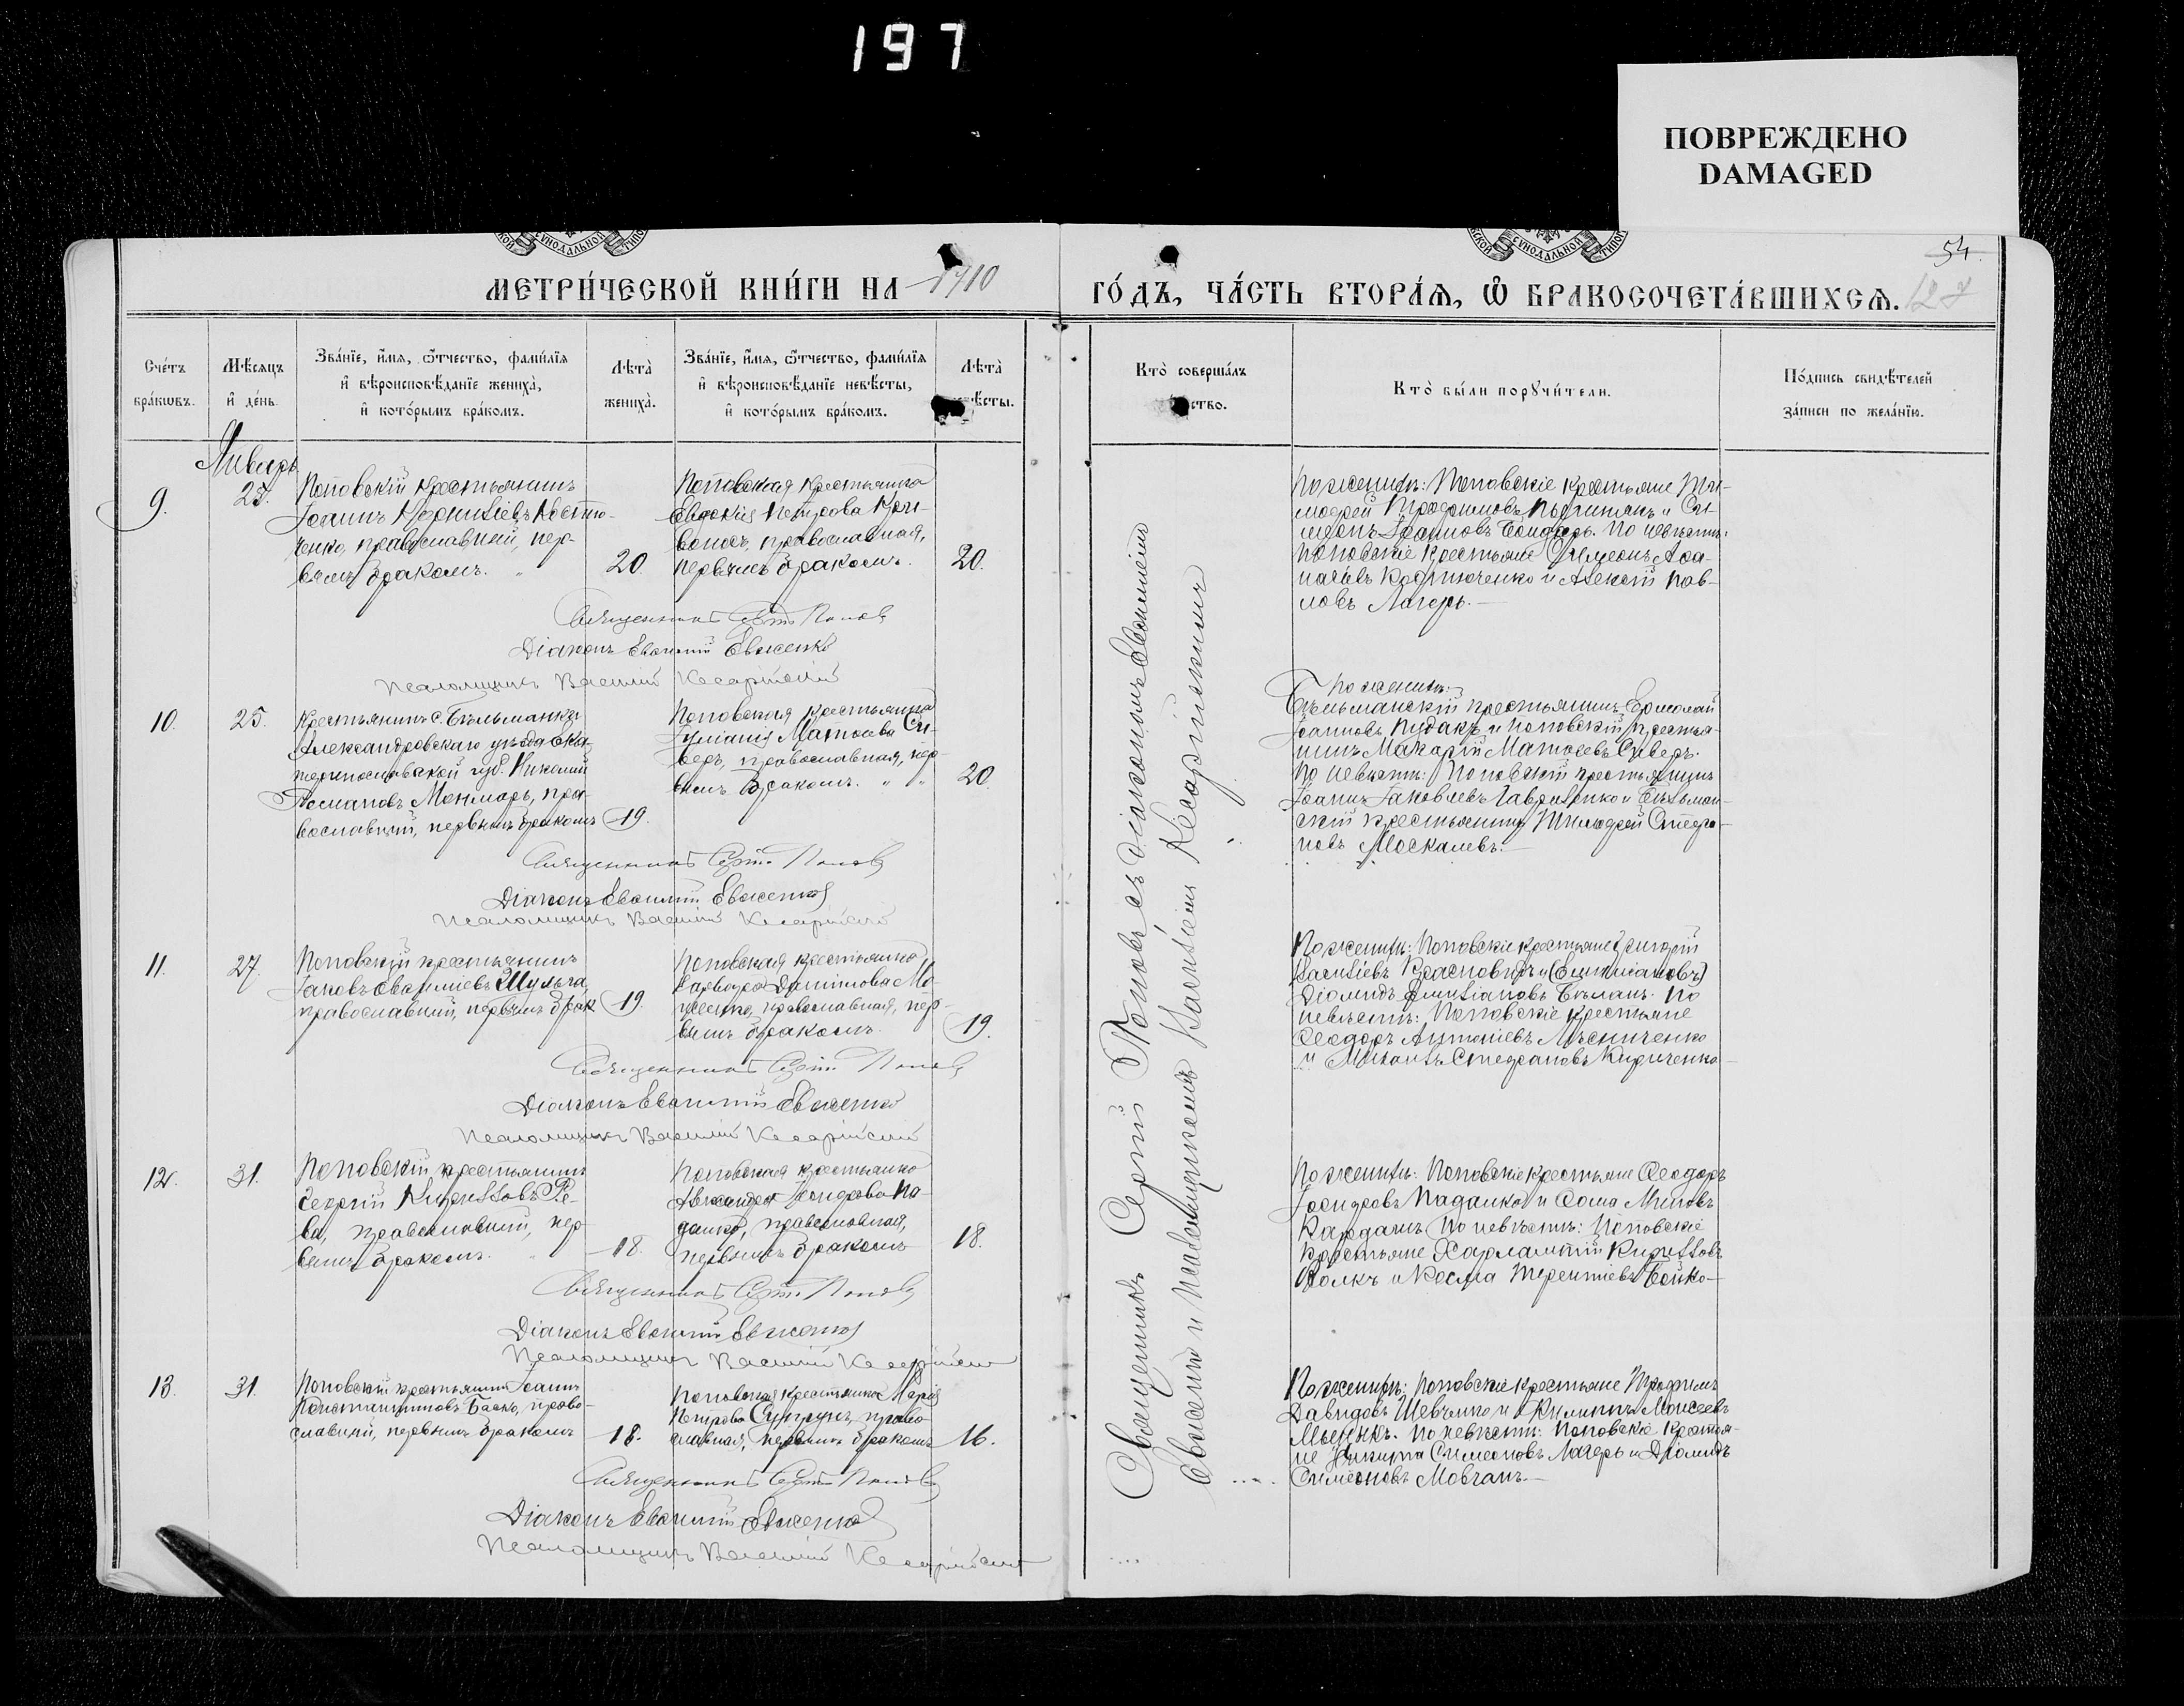 197
ПОВРЕЖДЕНО
DAMAGED
МЕТРИ́ЧЕСКОЙ КНИ́ГИ НА 1910
ГО́ДЪ, ЧА́СТЬ ВТОРА́Я, Ѡ БРАКОСОЧЕТА́ВШИХСЯ.
54.
127
Сче́тъ
бра́кѡвъ.
Мѣ́сяцъ
и҆ де́нь.
Зва́нїе, и҆́мя, ѻ҆́тчество, фамилїя
и҆ вѣроисповѣ́данїе жениха̀,
и҆ кото́рымъ бра́комъ.
Лѣта̀
жениха̀.
Зва́нїе, и҆́мя, ѻ҆́тчество, фамилїя
и҆ вѣроисповѣ́данїе невѣ́сты,
и҆ кото́рымъ бра́комъ.
Лѣта̀
вѣ́сты.
Кто̀ соверша́лъ
ство.
Кто̀ бы́ли порꙋчи́тели.
По́дпись свидѣ́телей
за́писи по жела́нїю.
Январь
9.
Поповскій крестьянинъ
Іоаннъ Корниліевъ Костю-
ченко, православный, пер-
вымъ бракомъ.
20.
Поповская крестьянка
Евдокія Петрова Кри-
воносъ, православная,
первымъ бракомъ.
20.
По женихѣ: Поповскіе крестьяне Ти-
мофей Трофимовъ и Си-
меонъ Іоанновъ Бондарь. По невѣстѣ:
поповскіе крестьяне Симеонъ Аѳа-
насіевъ и Алексій Пав-
ловъ Лагерь.
Священникъ Сергій Поповъ
Діаконъ Евѳимій Евженко
Псаломщикъ Василій Кесарійскій
10.
25.
Крестьянинъ с. Бѣльманки
Александровскаго уѣзда Ека-
теринославской губ. Николай
православный, первымъ бракомъ
19.
Поповская крестьянка
Іуліанія Матѳеева Си-
веръ, православная, пер-
вымъ бракомъ.
20.
По женихѣ:
Бѣльманскій крестьянинъ Ермолай
Іоанновъ Кудакъ и поповскій крестья-
нинъ Макарій Матѳеевъ Сиверъ.
По невѣстѣ: Поповскій крестьянинъ
Іоаннъ Іаковлевъ Гавриленко и Бѣльман-
скій крестьянинъ Тимофей Стефа-
новъ Москалевъ.
Священникъ Сергій Поповъ
Діаконъ Евѳимій Евженко
Псаломщикъ Василій Кесарійскій
11.
27.
Поповскій крестьянинъ
Іаковъ Шульга,
православный, первымъ брак
19.
Поповская крестьянка
Варвара Даніилова Мо-
православная, пер-
вымъ бракомъ.
19.
По женихѣ: Поповскіе крестьяне Григорій
Василіевъ
Діомидъ Бѣланъ. По
невѣстѣ: Поповскіе крестьяне
Ѳеодоръ Антоніевъ Мѣсниченко
и Михаилъ Стефановъ Кириченко
Священникъ Сергій Поповъ
Діаконъ Евѳимій Евженко
Псаломщикъ Василій Кесарійскій
12.
31.
Поповскій крестьянинъ
Георгій Кирилловъ Ре-
ва, православный, пер-
вымъ бракомъ.
18.
Поповская крестьянка
Александра Іосифова Па-
далка, православная,
первымъ бракомъ
18.
По женихѣ: Поповскіе крестьяне Ѳеодоръ
Іосифовъ Падалка и Ѳома Миновъ
Кардашъ. По невѣстѣ: Поповскіе
крестьяне Харлампій Кирилловъ
Волкъ и Косма Терентіевъ Бойко
Священникъ Сергій Поповъ
Діаконъ Евѳимій Евженко
Псаломщикъ Василій Кесарійскій
13.
31.
Поповскій крестьянинъ Іоаннъ
Константиновъ право-
славный, первымъ бракомъ
18.
Поповская крестьянка Марія
Петрова Супрунъ, право-
славная, первымъ бракомъ
16.
По женихѣ: Поповскіе крестьяне Трофимъ
Давидовъ Шевченко и Филиппъ Моисеевъ
По невѣстѣ: Поповскіе крестья-
не Никита Симеоновъ Лагерь и Діомидъ
Симеоновъ Мовчанъ.
Священникъ Сергій Поповъ
Діаконъ Евѳимій Евженко
Псаломщикъ Василій Кесарійскій
Священникъ Сергій Поповъ съ діакономъ Евѳиміемъ
Евженко и псаломщикомъ Василіемъ Кесарійскимъ